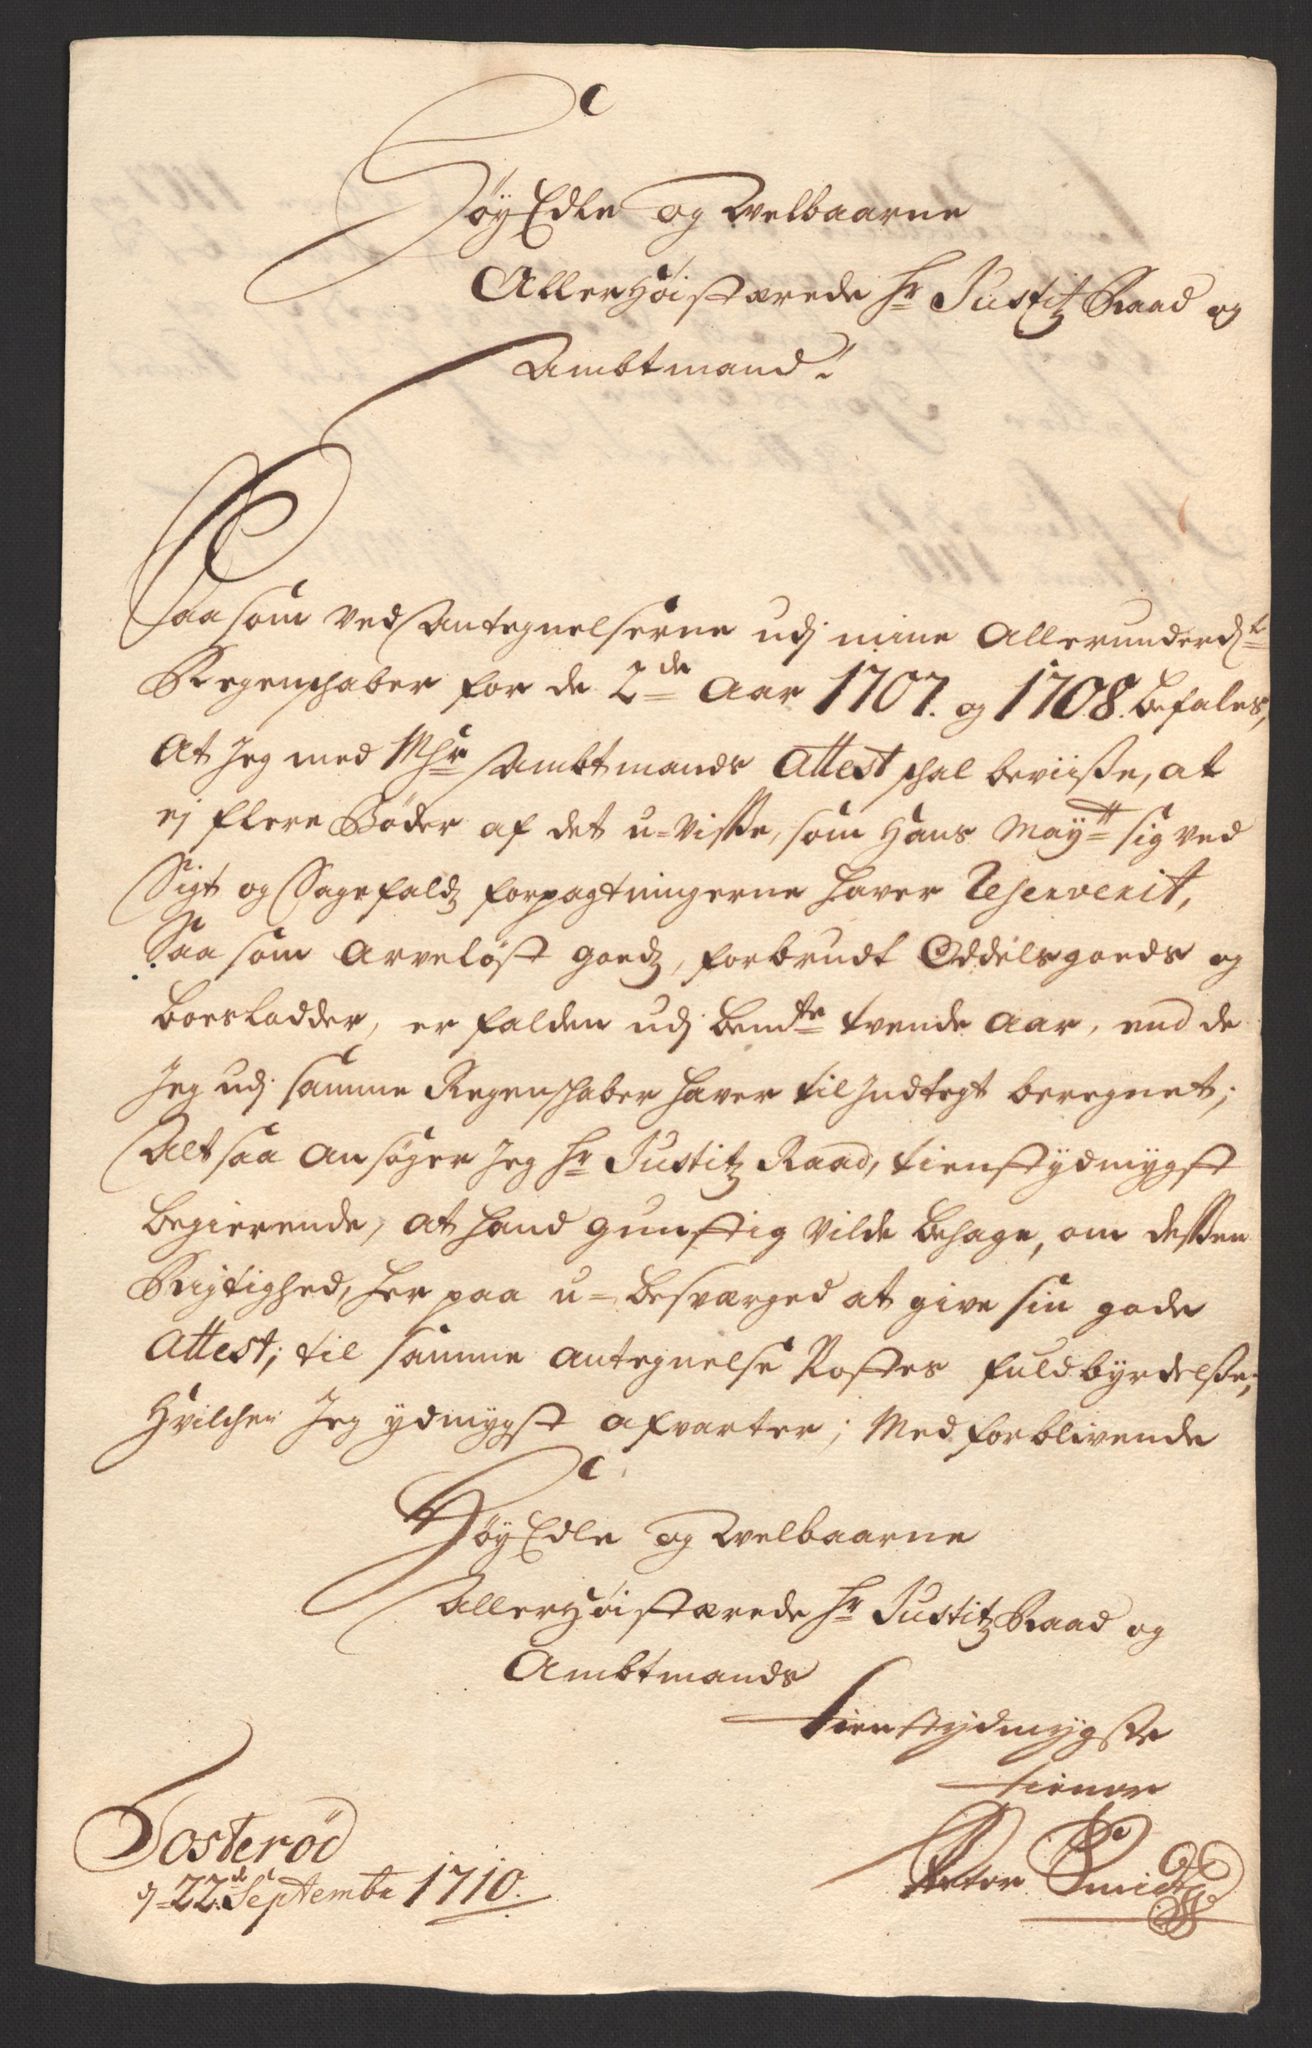 HøyEdle og Welbaarne
Allerhøistærede Hr Justitz Raad og
Ambtmand!
Saasom ved Antegnelserne udj mine Allerunderd:
Regenschaber for de 2de Aar 1707. og 1708. befales,
At Jeg med Mhr Ambtmands Attest schal beviisse, at
ej flere Bøder af det u-visse, som Hans Maytt sig ved
Sigt og Sagefaldz forpagtningerne haver Reserverit,
Saasom Arveløst goedz, forbrudt Oddelsgoeds og
boeslodder, er falden udj bemte tvende Aar, end de
Jeg udj samme Regenschaber haver til Indtegt beregnet;
Altsaa Ansøger Jeg Hr Justitz Raad, tienstydmygst
begierende, At hand gunstig vilde behage, om dessen
Rigtighed, her paa u-besværged at give sin gode
Attest; til samme Antegnelse Postes fuldbyrdelsse;
Hvilchen Jeg ydmygst afvarter; Med forblivende
HøyEdle og Welbaarne
Allerhøistærede Hr Justitz Raad og
Ambtmands
tienstydmygste
tiener
Tosterød
d 22de Septembr 1710.
Peter Smidt